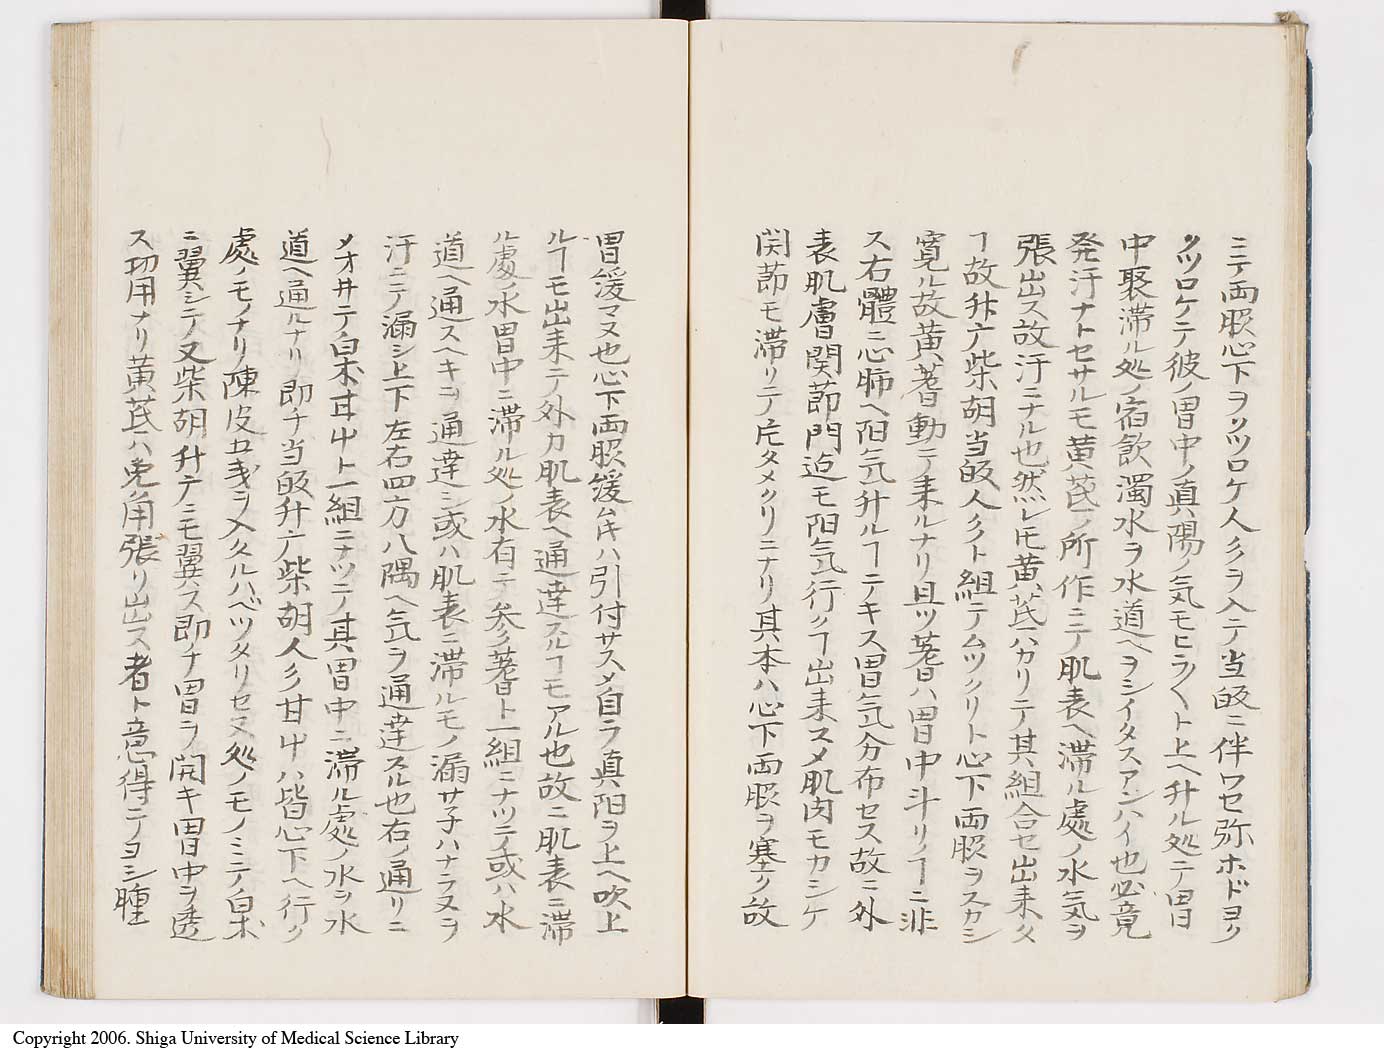 ニテ両脇心下ヲクツロケ人参ヲ入テ当皈ニ伴ワセ弥ホドヨク
クツロケテ彼ノ胃中ノ真陽ノ気モヒラ〱ト上ヘ升ル処ニテ胃
中聚滞ル処ノ宿飲濁水ヲ水道ヘヲシイタスアンハイ也必竟
発汗ナトセサルモ黄芪ノ所作ニテ肌表ヘ滞ル處ノ水気ヲ
張出ス故汗ニナル也然レ𪜈黄芪ハカリテ其組合セ出来タ
ヿ故升广柴胡当皈人参ト組テムツクリト心下両脇ヲスカシ
寛ル故黄耆動テ来ルナリ且ツ耆ハ胃中斗リノヿニ非
ス右體ニ心肺ヘ阳气升ルヿニテキス胃气分布セス故ニ外
表肌膚関節門迠モ阳気行クヿ出来スメ肌肉モカシケ
関節モ滞リニテ片タメクリニナリ其本ハ心下両脇ヲ塞ク故
胃緩マヌ也心下両脇緩ムキハ引付サスメ自ラ真阳ヲ上ヘ吹上
ルヿモ出来テ外カ肌表ヘ通達スルヿモアル也故ニ肌表ニ滞
ル處ノ水胃中ニ滞ル処ノ水有テ参耆ト一組ニナツテ或ハ水
道ヘ通スヘキヲ通達シ或ハ肌表ニ滞ルモノ漏サ子ハナラヌヲ
汗ニテ漏シ上下左右四方八隅ヘ気ヲ通達スル也右ノ通リニ
メオ井テ白朮甘艸ト一組ニナツテ其胃中ニ滞ル處ノ水ヲ水
道ヘ通ルナリ即チ当皈升广柴胡人参甘艸ハ皆心下ヘ行ク
處ノモノナリ陳皮五戔ヲ入タルハベツタリセヌ処ノモノミテ白朮
ニ翼シテ又柴胡升广ニモ翼ス即チ胃ヲ開キ胃中ヲ透
ス功用ナリ黄芪ハ兎角張リ出ス者ト意得テヨシ腫
Copyright 2006. Shiga University of Medical Science Library